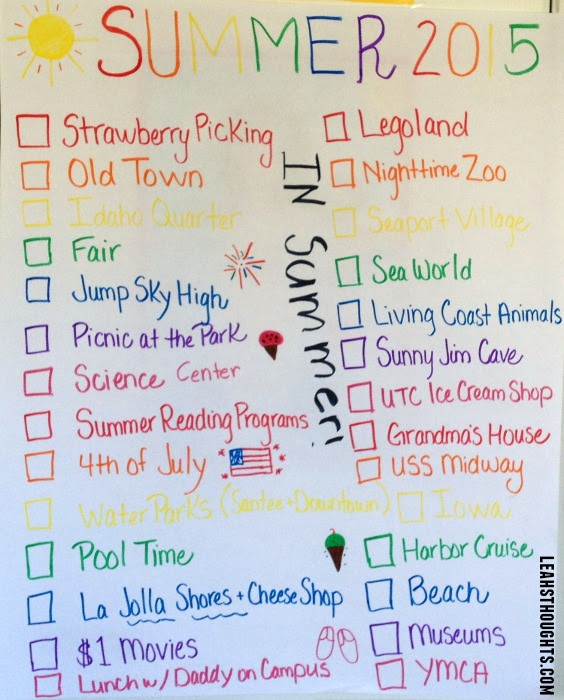 SUMMER 2015
Strawberry Picking
Old Town
Idaho Quarter
Fair
Jump Sky High
Picnic at the Park
Science Center
Summer Reading Programs
4th of July
Water Parks (Santee + Downtown)
Pool Time
La Jolla Shores + Cheese Shop
$1 Movies
Lunch w/ Daddy on Campus
IN Summer!
Legoland
Nighttime Zoo
Seaport Village
Sea World
Living Coast Animals
Sunny Jim Cave
UTC Ice Cream Shop
Grandma's House
USS Midway
Iowa
Harbor Cruise
Beach
Museums
YMCA
LEAHSTHOUGHTS.COM